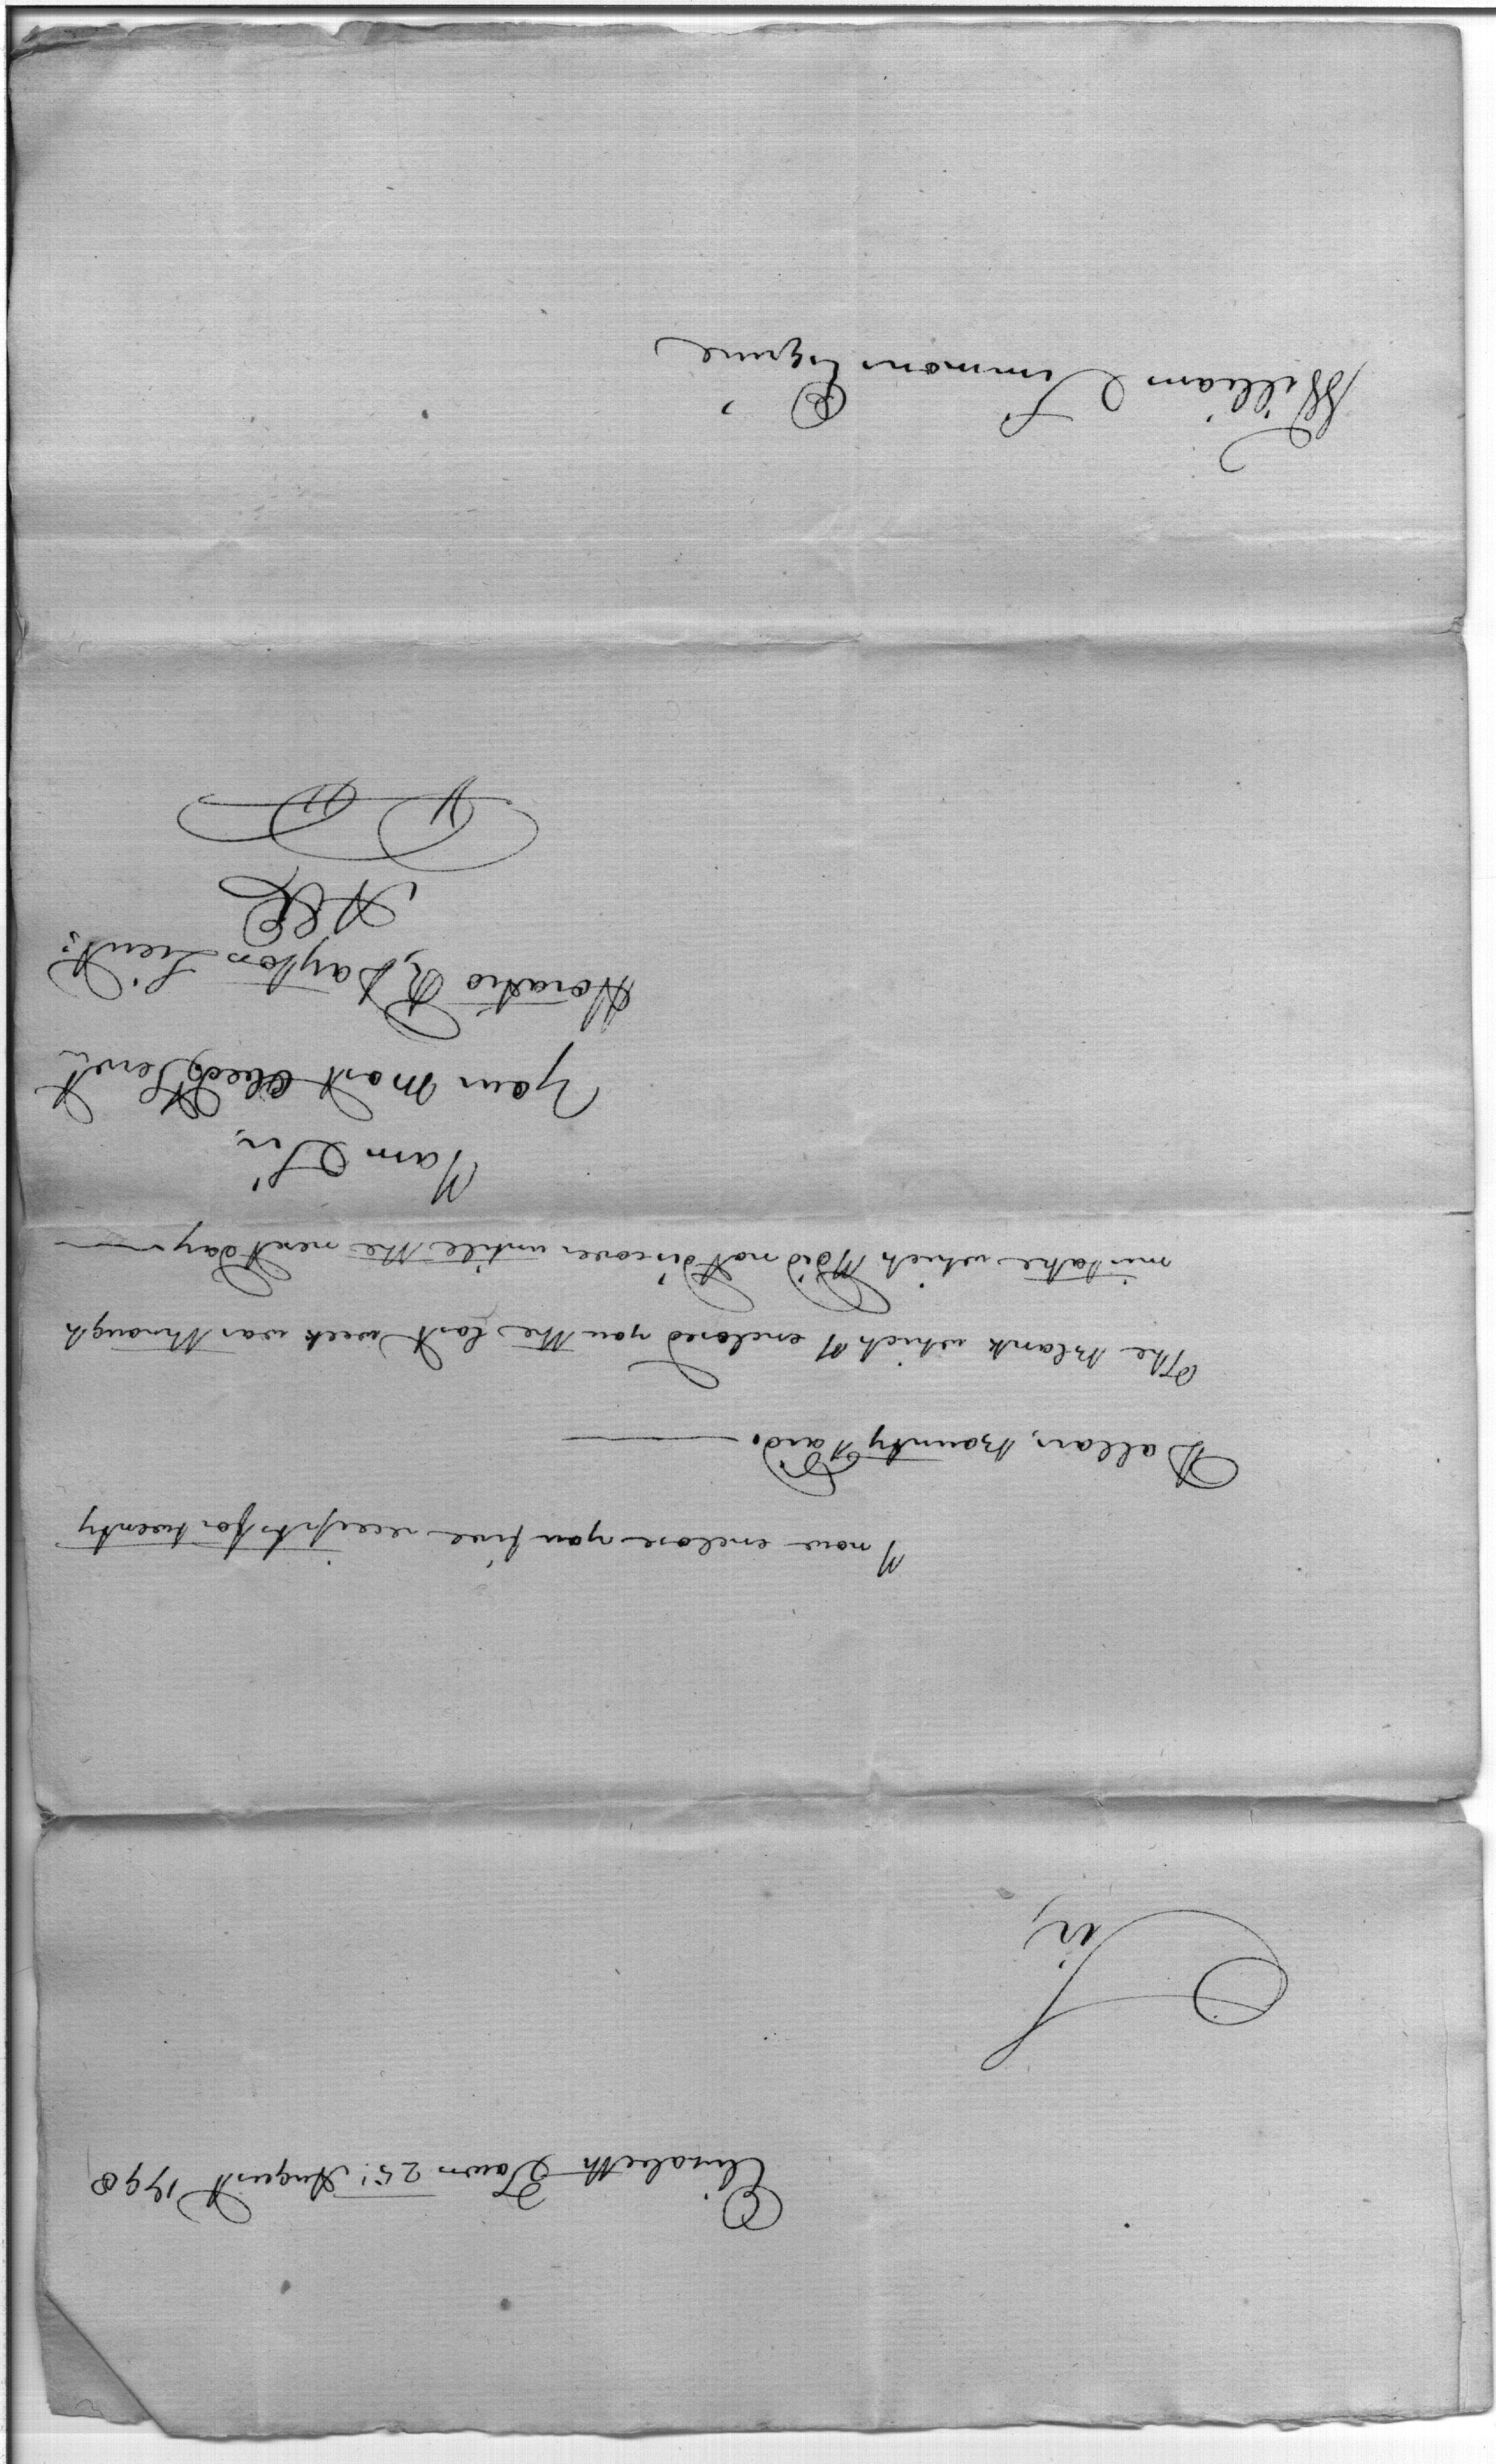 Elizabeth Town 25! August 1798
Sir,
I now enclose you five receipts for twenty
Dollars, Bounty Paid.
The Blank which I enclosed you the last week was through
mistake which I did not discover untill the next day
I am Sir,
your most Obed. Servt
Horatio R Dayton Lieut:
William Simmons Esquire